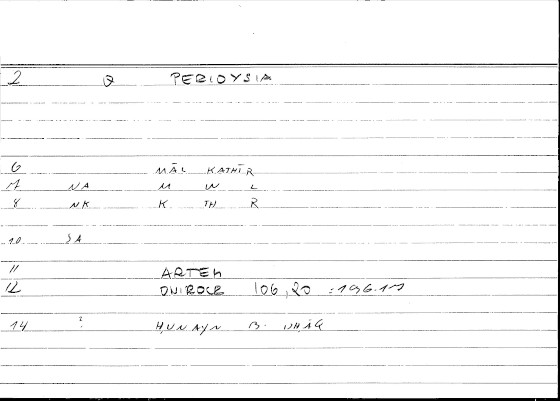 2 Q PERIOYSIA
6 MĀL KATHĪR
7 NA M W L
8 NK K TH R
10 SA
11 ARTEM
12 ONIROCR 106,20 :196.17
14 ? ḤUNAYN B. ISḤĀQ